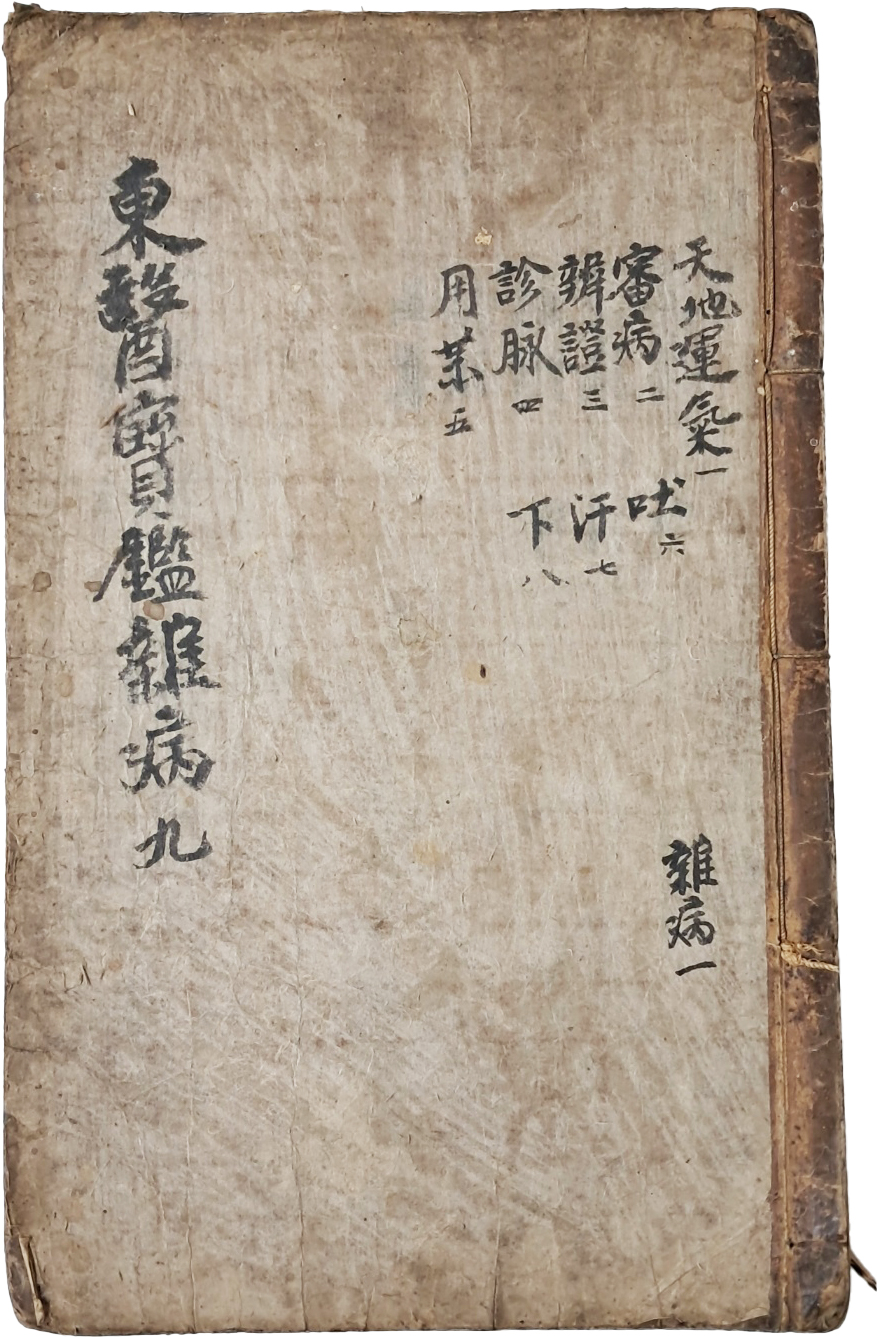 天地運氣一
審病二
辨證三
診脉四
用藥五
吐六
汗七
下八
雜病一
東醫寶鑑雜病九